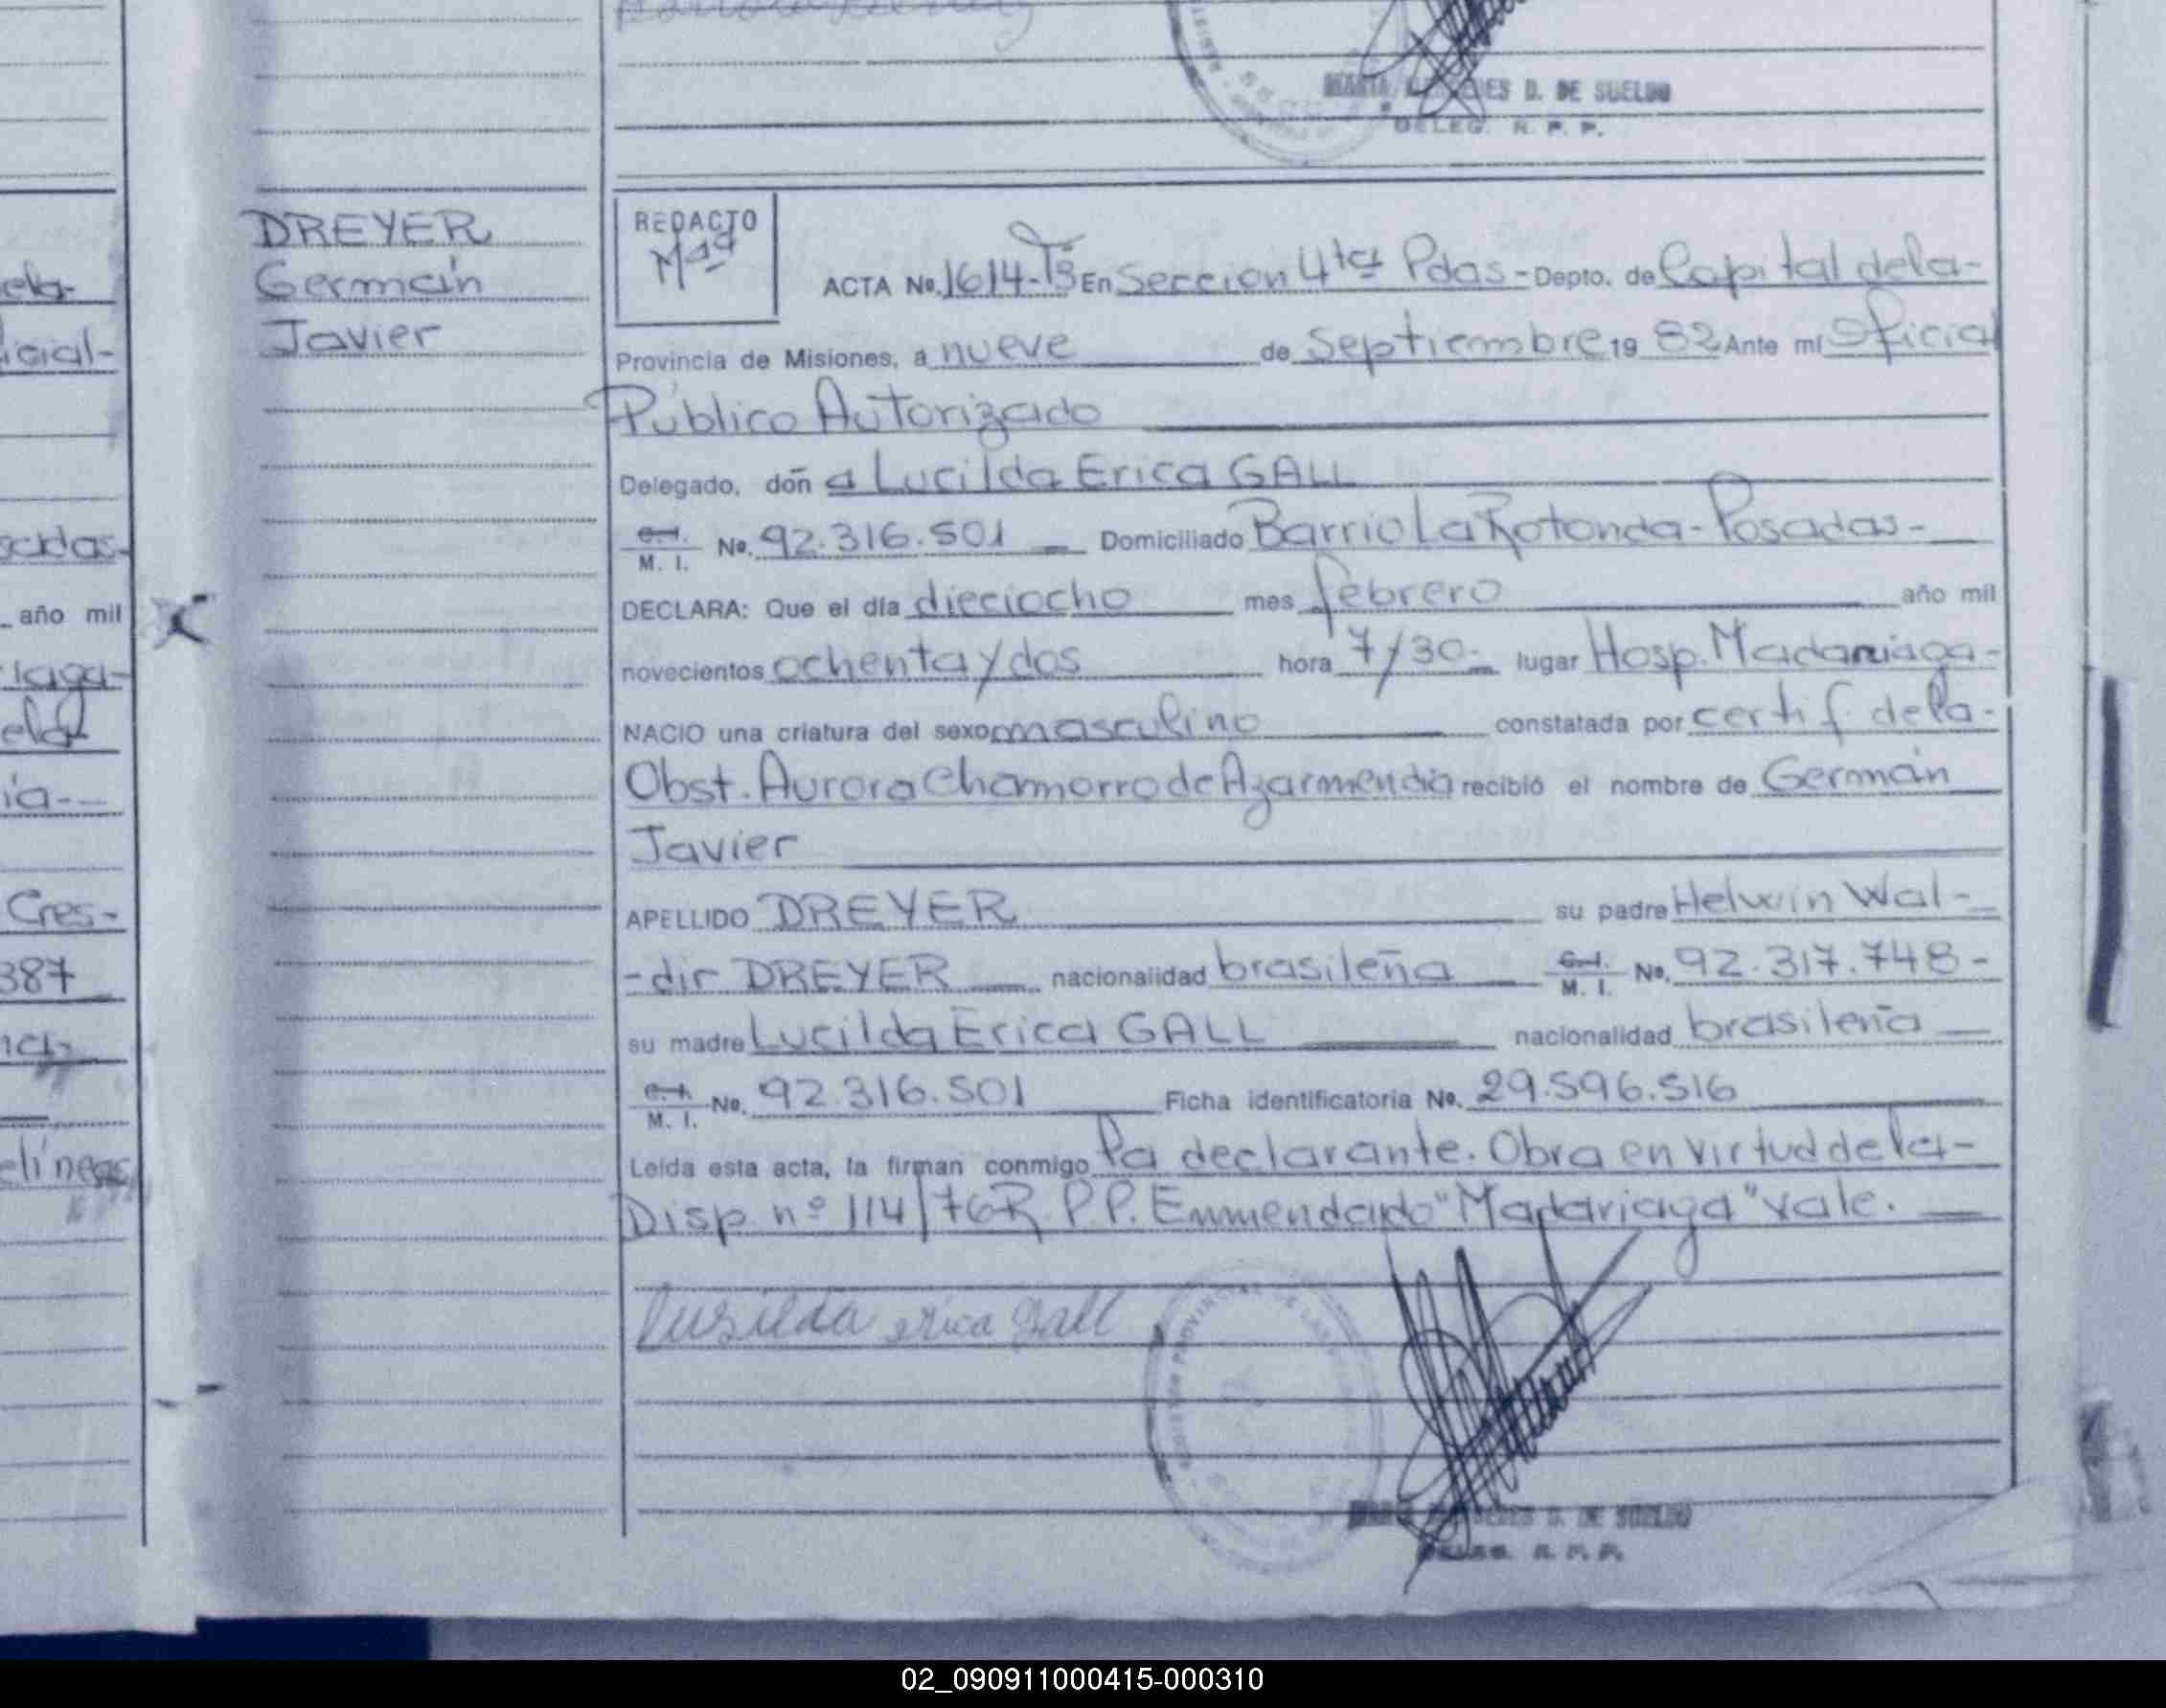 D. DE SUELDO
DELEG. R. P. P.
DREYER
Germán
Javier
REDACTO
Mª
ACTA No. 1614-Tº3 En Seccion 4ta Pdas - Depto. de Capital de la-
Provincia de Misiones, a nueve de Septiembre 19 82 Ante mí Oficial
Público Autorizado
Delegado, doñ a Lucilda Erica GALL
C.I. M. I. No. 92.316.501 Domiciliado Barrio La Rotonda - Posadas -
DECLARA: Que el día dieciocho mes febrero año mil
novecientos ochenta y dos hora 7/30- lugar Hosp. Madariaga-
NACIO una criatura del sexo masculino constatada por certif. de la-
Obst. Aurora Chamorro de Azarmendia recibió el nombre de Germán
Javier
APELLIDO DREYER su padre Helwin Wal-
-dir DREYER nacionalidad brasileña C.I. M. I. No. 92.317.748-
su madre Lucilda Erica GALL nacionalidad brasileña
C.I. M. I. No. 92.316.501 Ficha identificatoria No. 29.596.516
Leída esta acta, la firman conmigo la declarante. Obra en virtud de la-
Disp. nº 114/76 R.P.P. Enmendado "Madariaga" vale.
Lusilda erica gall
D. DE SUELDO
DELEG. R. P. P.
año mil
Cres-
387
02_090911000415-000310